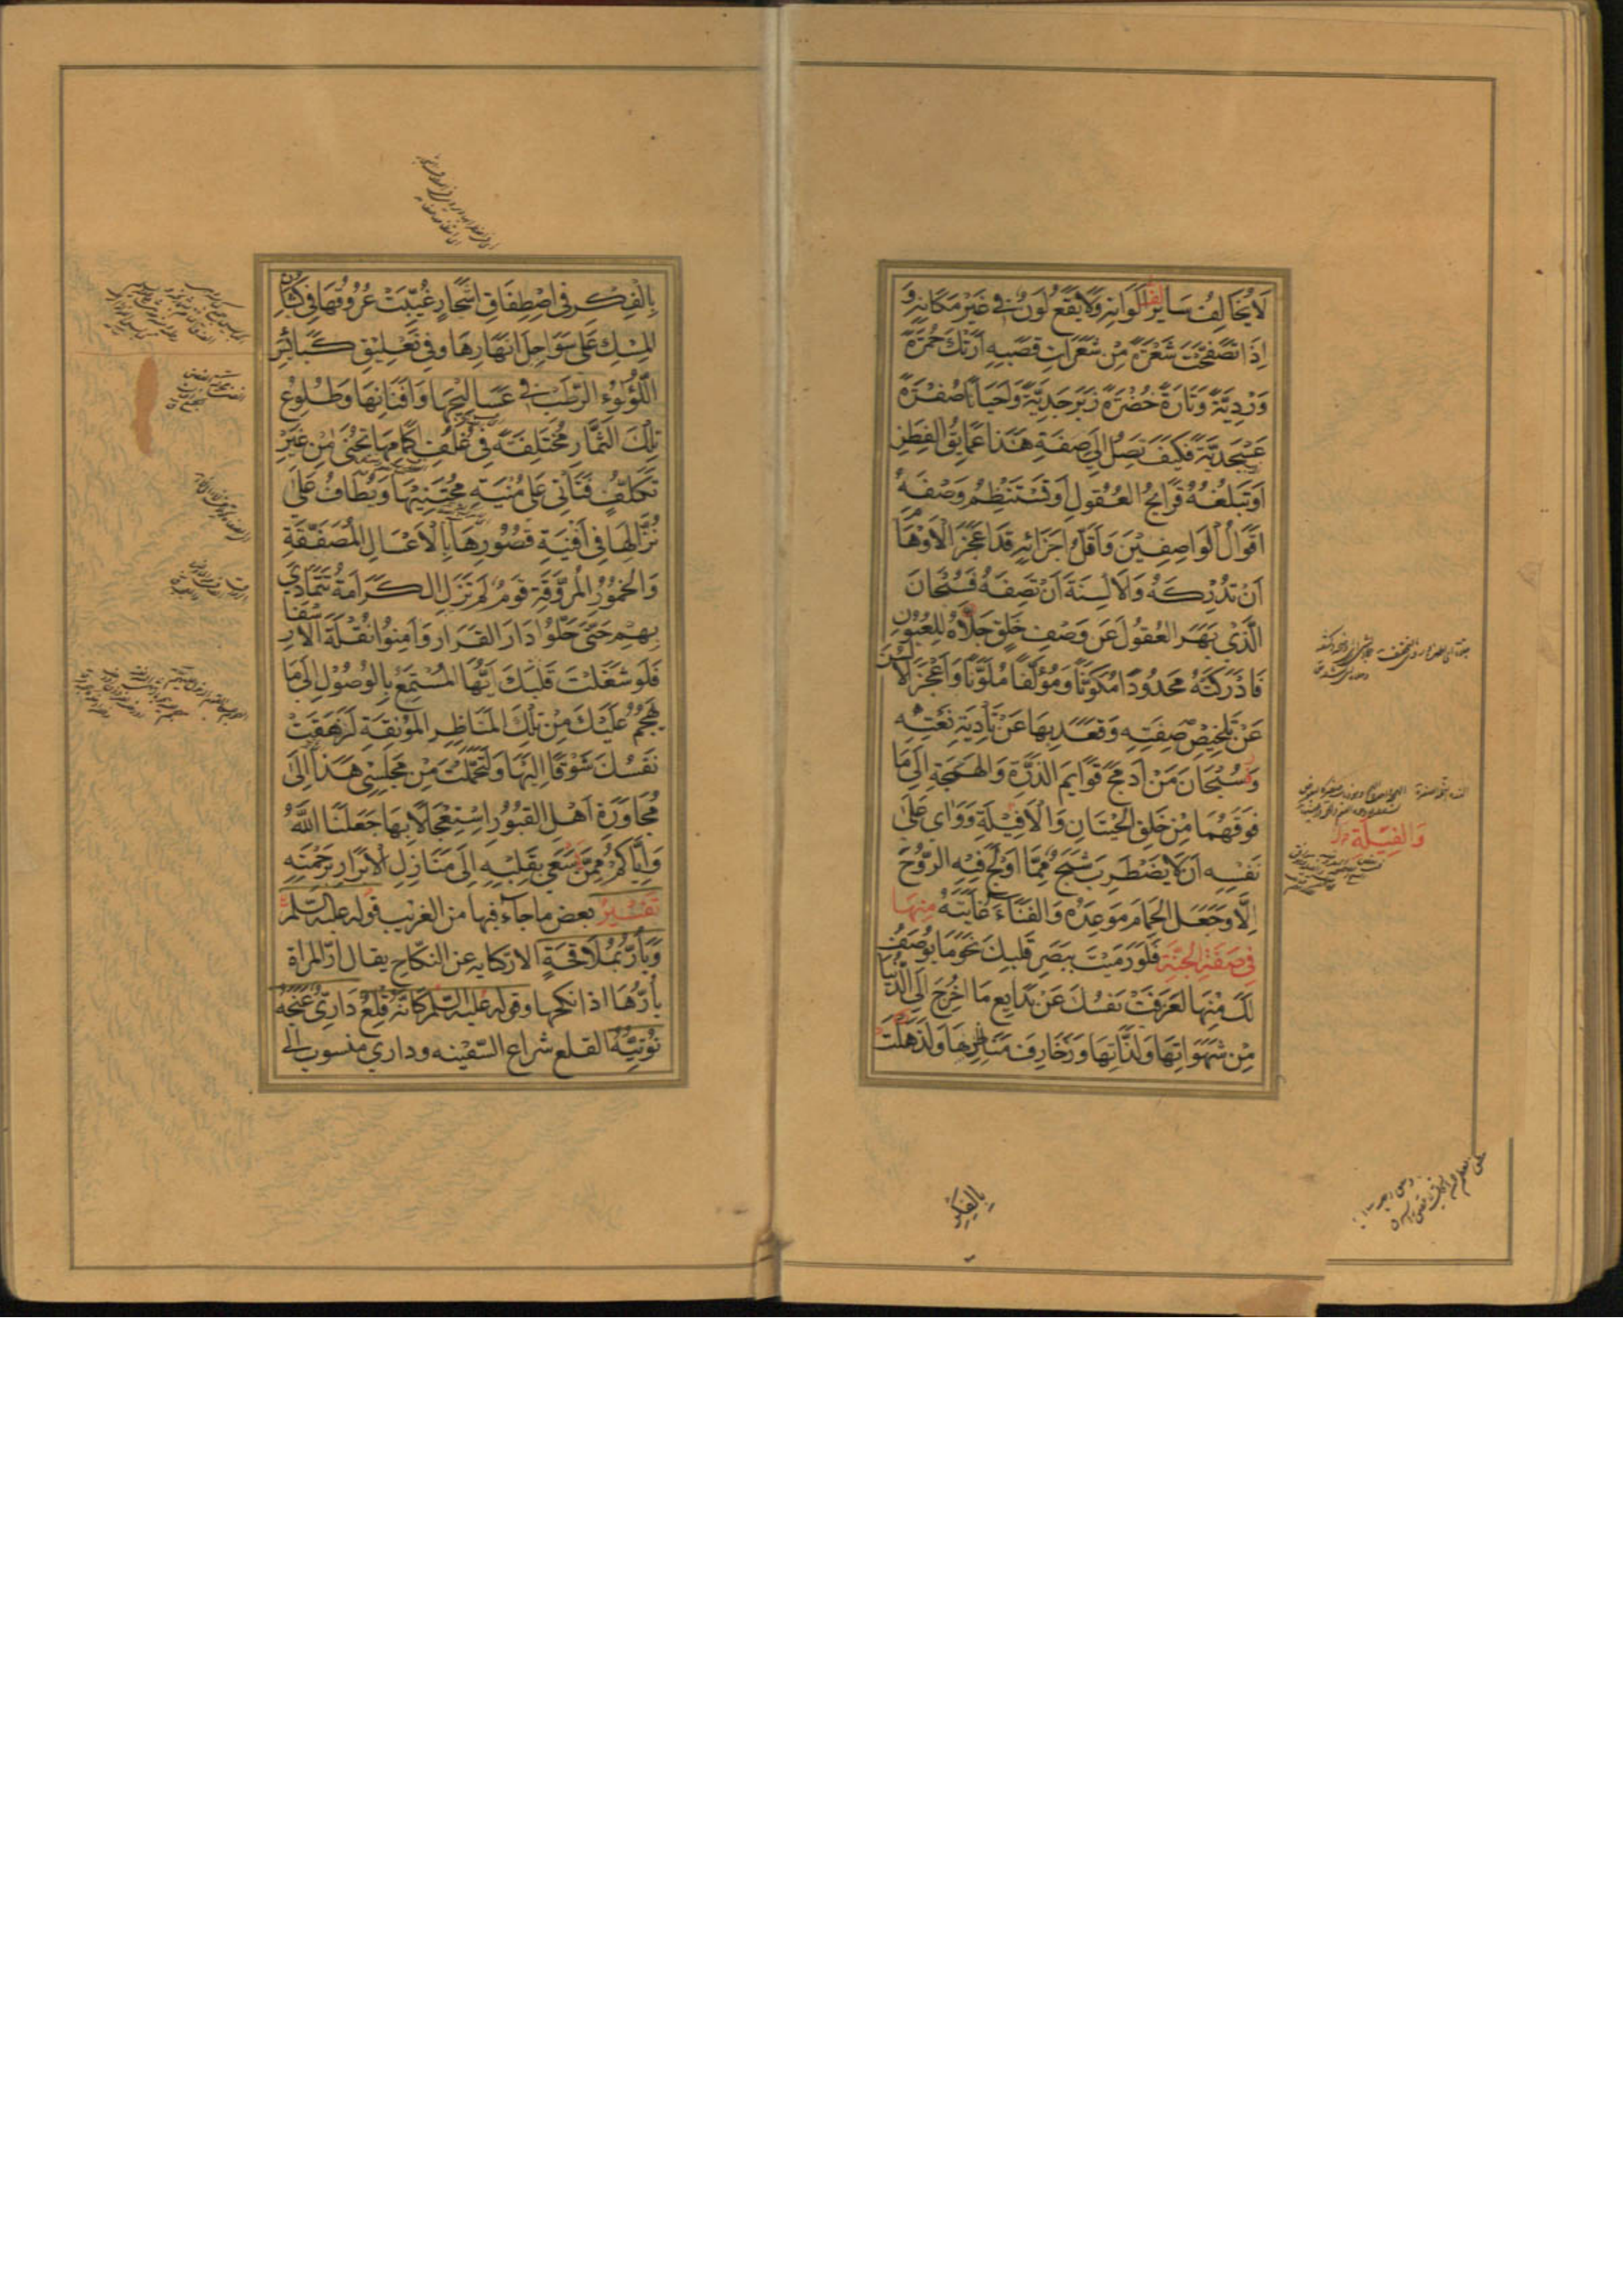 لَا يُخَالِفُ سَايِرَ اَلْوَانِهِ وَلَا يَقَعُ لَوْنٌ فِي غَيْرِ مَكَانِهِ وَ
اِذَا تَصَفَّحْتَ شَعْرَةً مِنْ شَعَرَاتِ قَصَبِهِ اَرَتْكَ حُمْرَةً
وَرْدِيَّةً وَتَارَةً خُضْرَةً زَبَرْجَدِيَّةً وَاَحْيَانًا صُفْرَةً
عَسْجَدِيَّةً فَكَيْفَ تَصِلُ اِلَى صِفَةِ هَذَا عَمَايِقُ الفِطَنِ
اَوْ تَبْلُغُهُ قَرَايِحُ العُقُولِ اَوْ تَسْتَنْظِمُ وَصْفَهُ
اَقْوَالُ الْوَاصِفِيْنَ وَاَقَلُّ اَجْزَائِهِ قَدْ اَعْجَزَ الْاَوْهَامَ
اَنْ تُدْرِكَهُ وَالَالْسِنَةَ اَنْ تَصِفَهُ فَسُبْحَانَ
الَّذِي بَهَرَ العُقُولَ عَنْ وَصْفِ خَلْقٍ جَلَّاهُ لِلْعُيُونِ
فَاَدْرَكَتْهُ مَحْدُودًا مُكَوَّنًا وَمُؤَلَّفًا مُلَوَّنًا وَاَعْجَزَ الْاَلْسُنَ
عَنْ تَلْخِيْصِ صِفَتِهِ وَقَعَدَ بِهَا عَنْ تَاْدِيَةِ نَعْتِهِ
وَسُبْحَانَ مَنْ اَدْمَجَ قَوَايِمَ الذَّرَّةِ وَالهَمَجَةِ اِلَى مَا
فَوْقَهُمَا مِنْ خَلْقِ الْحِيْتَانِ وَالْاَفْيِلَةِ وَوَاَى عَلَى
نَفْسِهِ اَنْ لَا يَضْطَرِبَ شَبَحٌ مِمَّا اَوْلَجَ فِيْهِ الرُّوْحَ
اِلَّا وَجَعَلَ الْحِمَامَ مَوْعِدَهُ وَالفَنَاءَ غَايَتَهُ مِنْهَا
فِي صِفَةِ الْجَنَّةِ فَلَوْ رَمَيْتَ بِبَصَرِ قَلْبِكَ نَحْوَ مَا يُوصَفُ
لَكَ مِنْهَا لَعَزَفَتْ نَفْسُكَ عَنْ بَدَايِعِ مَا اُخْرِجَ اِلَى الدُّنْيَا
مِنْ شَهَوَاتِهَا وَلَذَّاتِهَا وَزَخَارِفِ مَنَاظِرِهَا وَلَذَهِلَتْ
وَالفِيَلَةِ
بِالفِكْرِ
بِالْفِكْرِ فِي اصْطِفَاقِ اَشْجَارٍ غُيِّبَتْ عُرُوْقُهَا فِي كُثْبَانِ
الْمِسْكِ عَلَى سَوَاحِلِ اَنْهَارِهَا وَفِي تَعْلِيْقِ كَبَائِسِ
اللُّؤْلُؤِ الرَّطْبِ فِي عَسَالِيْجِهَا وَاَفْنَانِهَا وَطُلُوْعِ
تِلْكَ الثِّمَارِ مُخْتَلِفَةً فِي غُلُفِ اَكْمَامِهَا تُجْنَى مِنْ غَيْرِ
تَكَلُّفٍ فَتَاْتِي عَلَى مُنْيَةِ مُجْتَنِيْهَا وَيُطَافُ عَلَى
نُزَّالِهَا فِي اَفْنِيَةِ قُصُوْرِهَا بِالْاَعْسَالِ الْمُصَفَّقَةِ
وَالْخُمُوْرِ الْمُرَوَّقَةِ قَوْمٌ لَمْ تَزَلِ الْكَرَامَةُ تَتَمَادَى
بِهِمْ حَتَّى حَلُّوا دَارَ القَرَارِ وَاَمِنُوا نُقْلَةَ الْاَسْفَارِ
فَلَوْ شَغَلْتَ قَلْبَكَ اَيُّهَا الْمُسْتَمِعُ بِالْوُصُوْلِ اِلَى مَا
يَهْجُمُ عَلَيْكَ مِنْ تِلْكَ الْمَنَاظِرِ الْمُوْنِقَةِ لَزَهَقَتْ
نَفْسُكَ شَوْقًا اِلَيْهَا وَلَتَحَمَّلْتَ مِنْ مَجْلِسِي هَذَا اِلَى
مُجَاوَرَةِ اَهْلِ القُبُوْرِ اسْتِعْجَالًا بِهَا جَعَلَنَا اللهُ
وَاِيَّاكُمْ مِمَّنْ سَعَى بِقَلْبِهِ اِلَى مَنَازِلِ الْاَبْرَارِ بِرَحْمَتِهِ
تَفْسِيْرُ بعض ما جاء فيها من الغريب قوله عليه السلم
وَيَاُرُّ بِمُلَاقَحَةٍ الار كنايه عن النكاح يقال ارّ المراة
يَاُرُّهَا اذا نكحها وقوله عليه السلم كَاَنَّهُ قِلْعُ دَارِيٍّ عَنَجَهُ
نُوْتِيُّهُ القلع شراع السّفينه وداري منسوب الى